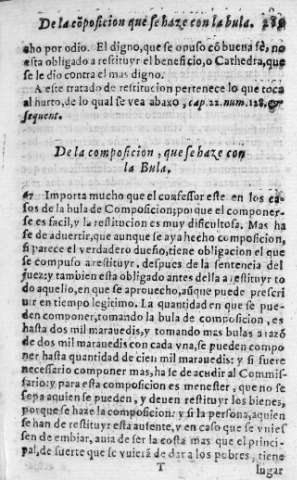 De la cõposicion que se haze con la bula. 289
cho por odio. El digno, que se opuso cõ buena fè, no
esta obligado a restituyr el beneficio, o Cathedra, que
se le dio contra el mas digno.
A este tratado de restitucion pertenece lo que toca
al hurto, de lo qual se vea abaxo, cap. 22. num. 128. &
sequent.
De la composicion, que se haze con
la Bula.
Importa mucho que el confessor este en los ca-
sos de la bula de Composicion; porque el componer-
se es facil, y la restitucion es muy dificultosa. Mas ha
se de aduertir, que aunque se aya hecho composicion,
si parece el verdadero dueño, tiene obligacion el que
se compuso a restituyr, despues de la sentencia del
juez: y tambien esta obligado antes della a restituyr to
do aquello, en que se aprouecho, aũque puede prescri
uir en tiempo legitimo. La quantidad en que se pue-
den componer, tomando la bula de composicion, es
hasta dos mil marauedis, y tomando mas bulas a razõ
de dos mil marauedis con cada vna, se pueden compo
ner hasta quantidad de cien mil marauedis: y si fuere
necessario componer mas, ha se de acudir al Commis-
sario: y para esta composicion es menester, que no se
sepa a quien se pueden, y deuen restituyr los bienes,
porque se haze la composicion: y si la persona, a quien
se han de restituyr esta ausente, y en caso que se vuies
sen de embiar, auia de ser la costa mas que el princi-
pal, de suerte que se vuiera de dar a los pobres, tiene
T
lugar